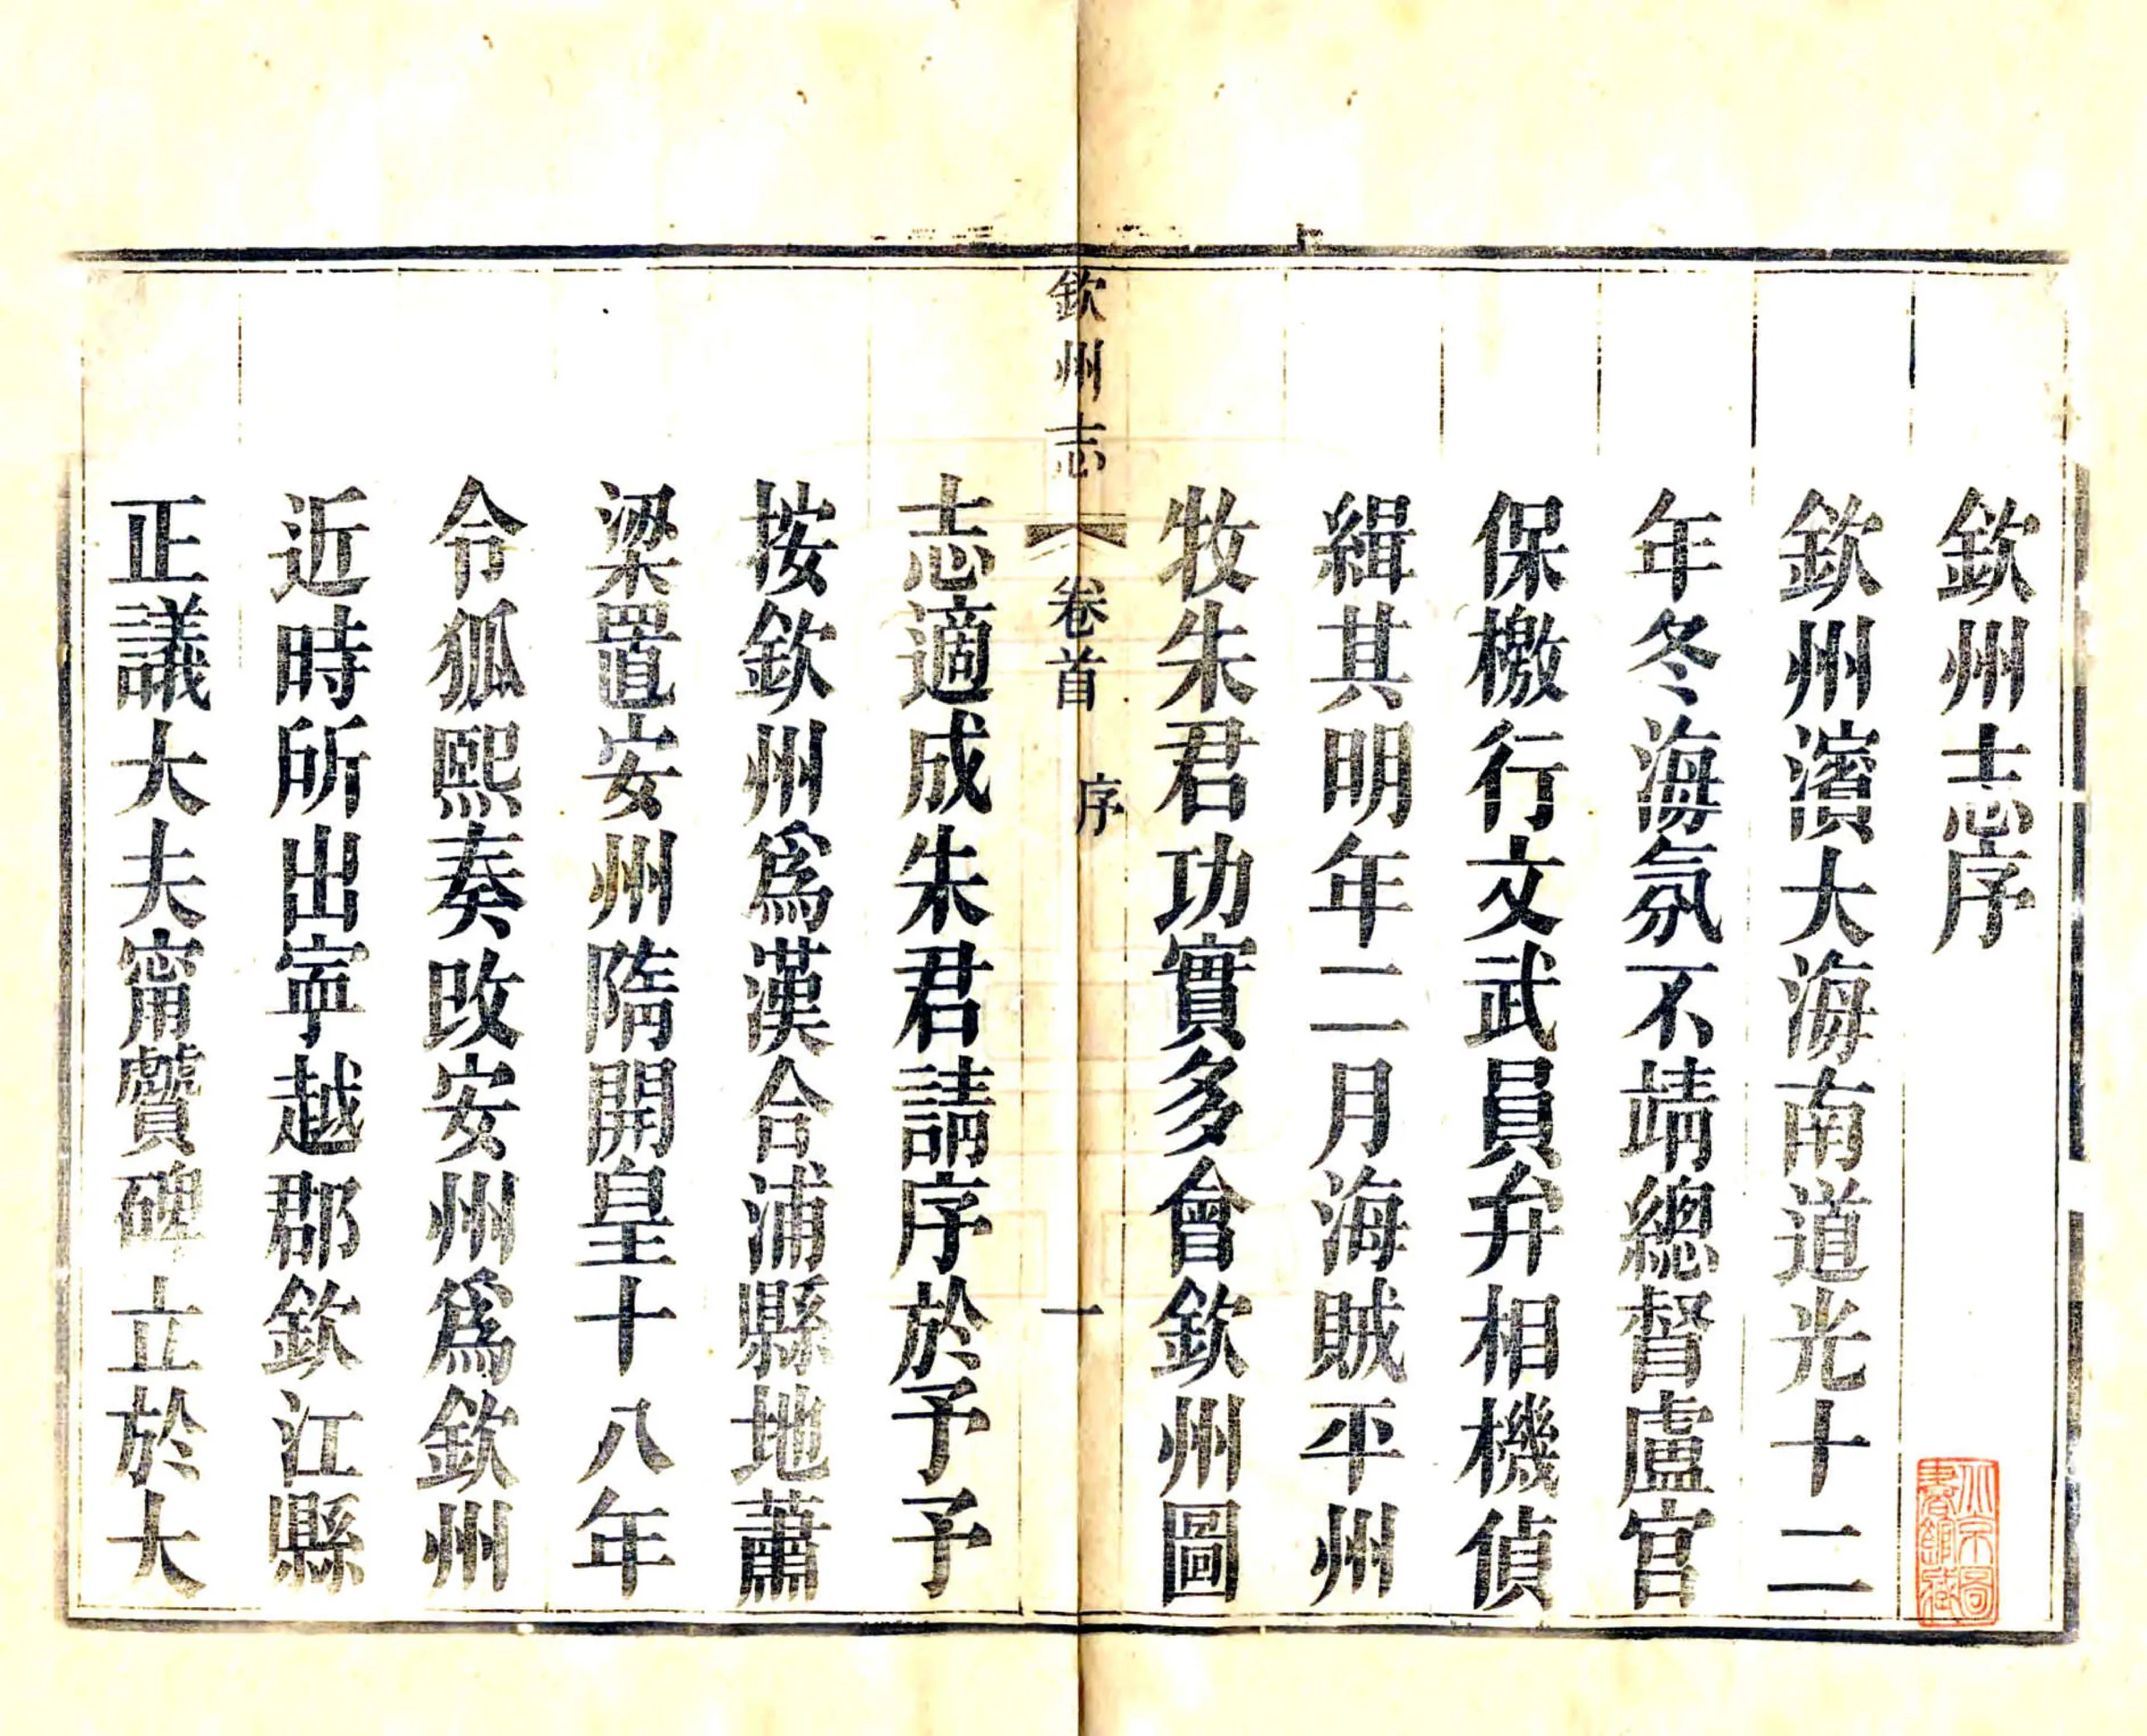 欽州志序
欽州濱大海南道光十二
年冬海氛不靖總督盧宮
保檄行文武員弁相機偵
緝其明年二月海賊平州
牧朱君功實多會欽州圖
欽州志
卷首
序
一
志適成朱君請序於予予
按欽州爲漢合浦縣地蕭
梁置安州隋開皇十八年
令狐熙奏改安州爲欽州
近時所出寧越郡欽江縣
正議大夫甯贙碑立於大